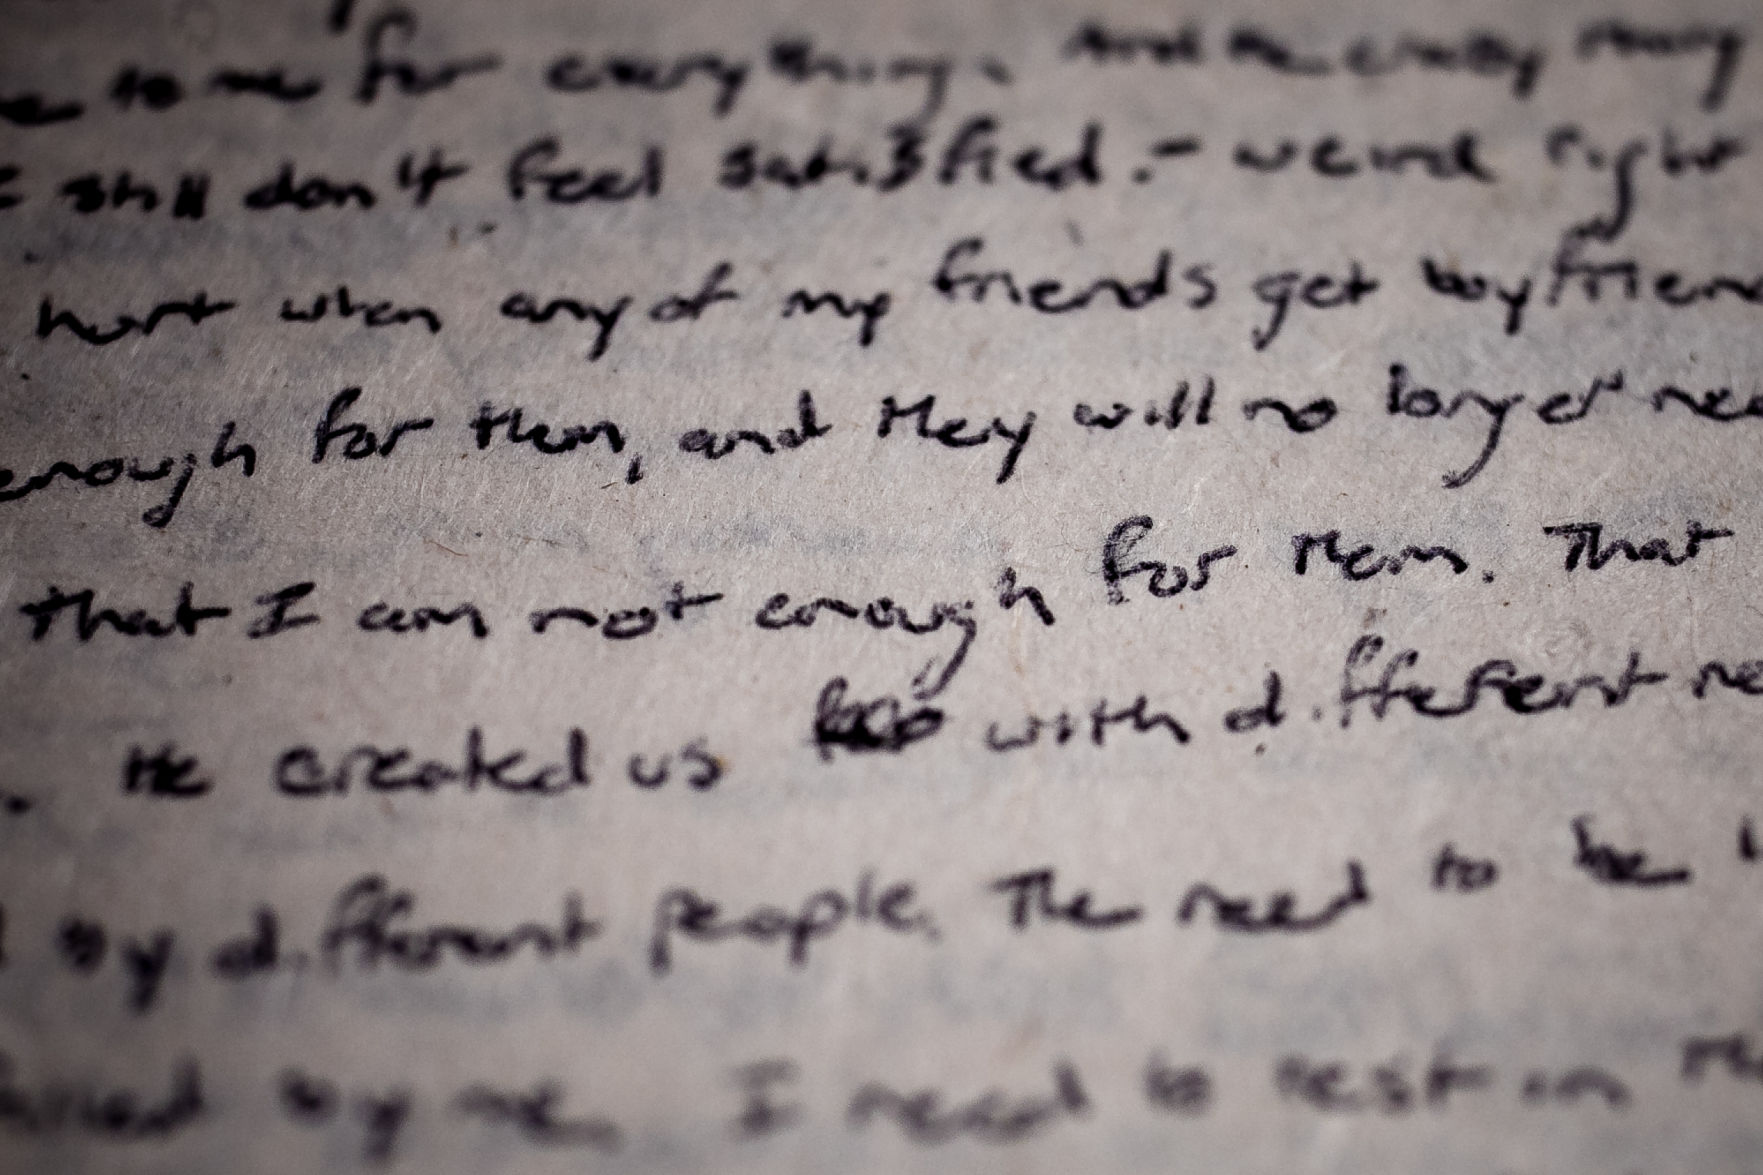 to me for everything. And the crazy thing
still don't feel satisfied. - weird right
hurt when any of my friends get boyfrien
enough for them, and they will no longer nee
that I am not enough for them. That
. He created us with different ne
by different people. The need to be
by me. I need to rest in